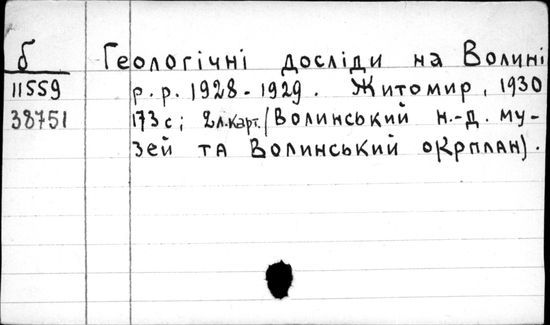 б Геологічні досліди на Волині
11559 р.р. 1928-1929. Житомир, 1930
38751 173 с; 2 л.карт. (Волинський н.-д. му-
зей та Волинський окрплан).